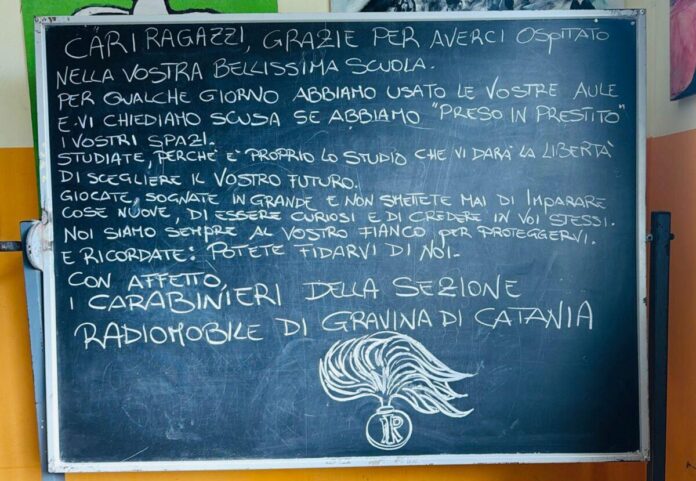 CARI RAGAZZI, GRAZIE PER AVERCI OSPITATO
NELLA VOSTRA BELLISSIMA SCUOLA.
PER QUALCHE GIORNO ABBIAMO USATO LE VOSTRE AULE
E VI CHIEDIAMO SCUSA SE ABBIAMO "PRESO IN PRESTITO"
I VOSTRI SPAZI.
STUDIATE, PERCHÈ E' PROPRIO LO STUDIO CHE VI DARÀ LA LIBERTÀ
DI SCEGLIERE IL VOSTRO FUTURO.
GIOCATE, SOGNATE IN GRANDE E NON SMETTETE MAI DI IMPARARE
COSE NUOVE, DI ESSERE CURIOSI E DI CREDERE IN VOI STESSI.
NOI SIAMO SEMPRE AL VOSTRO FIANCO PER PROTEGGERVI.
E RICORDATE: POTETE FIDARVI DI NOI.
CON AFFETTO,
I CARABINIERI DELLA SEZIONE
RADIOMOBILE DI GRAVINA DI CATANIA
RI